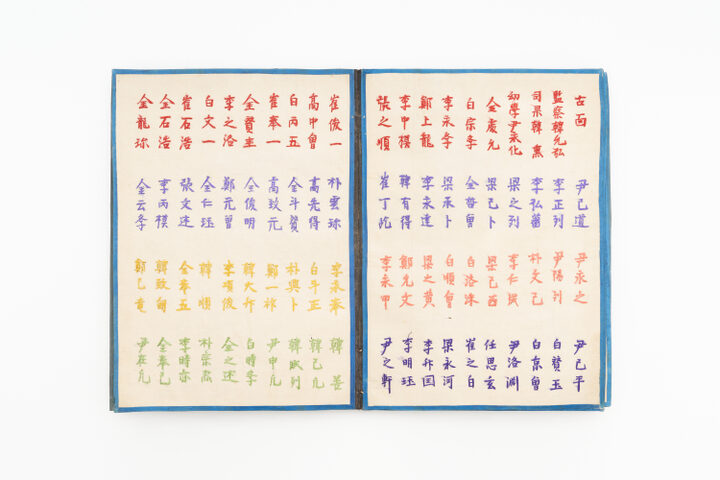 古面
監察韓允弘
司果韓熏
幼學尹永化
全處允
白宗季
李永季
鄭上龍
李甲模
張之順
尹己道
李正列
李弘蕃
梁之列
梁己卜
全晉曾
梁承卜
李永達
韓有得
崔丁
尹永之
尹陽列
朴文己
李仁
梁己
白洛洙
白順曾
梁之黄
鄭允文
李永甲
尹己平
白賛玉
白京曾
尹洛淵
任思玄
崔之白
梁永河
李升国
李明珏
尹之軒
崔俊一
高甲曾
白丙五
崔奉一
全賛圭
李之洛
白文一
崔石浩
全石浩
全龍珎
朴雲珎
高先得
全斗賛
高致元
全俊明
鄭元曾
全仁珏
張文述
李丙模
全云季
李承奉
白斗正
朴興卜
鄭一祚
韓大升
李順俊
韓順
全奉五
韓致
鄭己竜
韓善
韓己允
韓成列
尹甲允
白時季
全之述
朴宗
李時亦
全奉己
尹在允